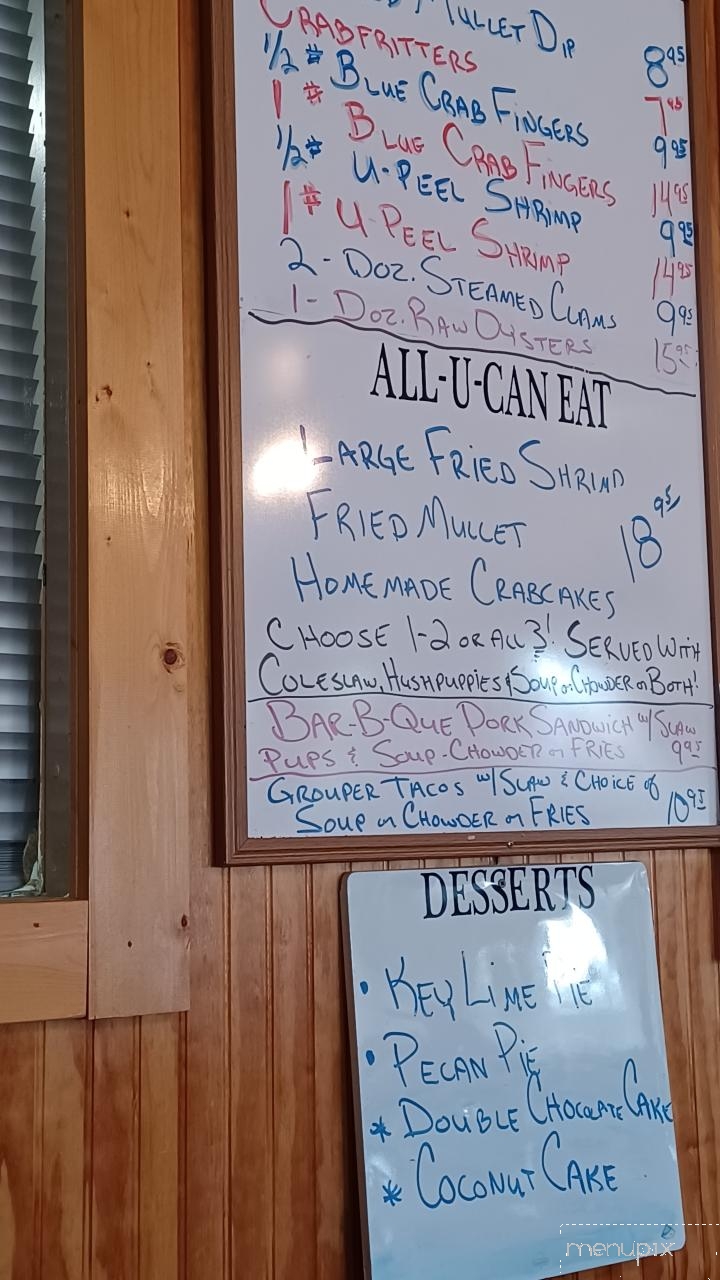 Mullet Dip 8.95
Crabfritters 7.95
1/2 # Blue Crab Fingers 9.95
1 # Blue Crab Fingers 14.95
1/2 # U-Peel Shrimp 9.95
1 # U-Peel Shrimp 14.95
2-Doz. Steamed Clams 9.95
1-Doz. Raw Oysters 15.95
ALL-U-CAN EAT
Large Fried Shrimp
Fried Mullet 18.95
Homemade Crabcakes
Choose 1-2 or All 3! Served With
Coleslaw, Hushpuppies & Soup or Chowder or Both!
Bar-B-Que Pork Sandwich w/Slaw
Pups & Soup-Chowder or Fries 9.95
Grouper Tacos w/Slaw & Choice of
Soup or Chowder or Fries 10.95
DESSERTS
• Key Lime Pie
• Pecan Pie
* Double Chocolate Cake
* Coconut Cake
menupix